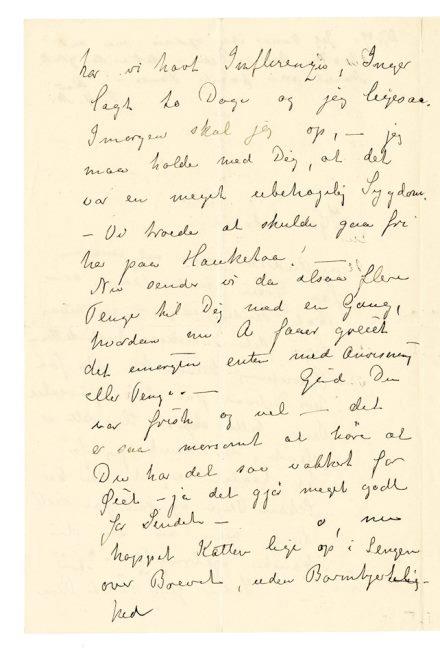 har vi havt Influenza, Inger
lagt to Dage og jeg ligesaa.
Imorgen skal jeg op, — jeg
maa holde med Dig, at det
var en meget ubehagelig Sygdom.
– Vi troede at skulde gaa fri
her paa Haukelaa! —
Nu sender vi da altsaa flere
Penge til Dig med en Gang,
hvordan nu A faaer greiet
det imorgen enten med Anvisning
eller Penge. — Gid Du
var frisk og vel — det
er saa morsomt at höre at
Du har det saa vakkert for
Öiet – ja det gjör meget godt
for Sindet — o, nu
hoppet Katten lige op i Sengen
over Brevet, uden Barmhjertelig-
hed